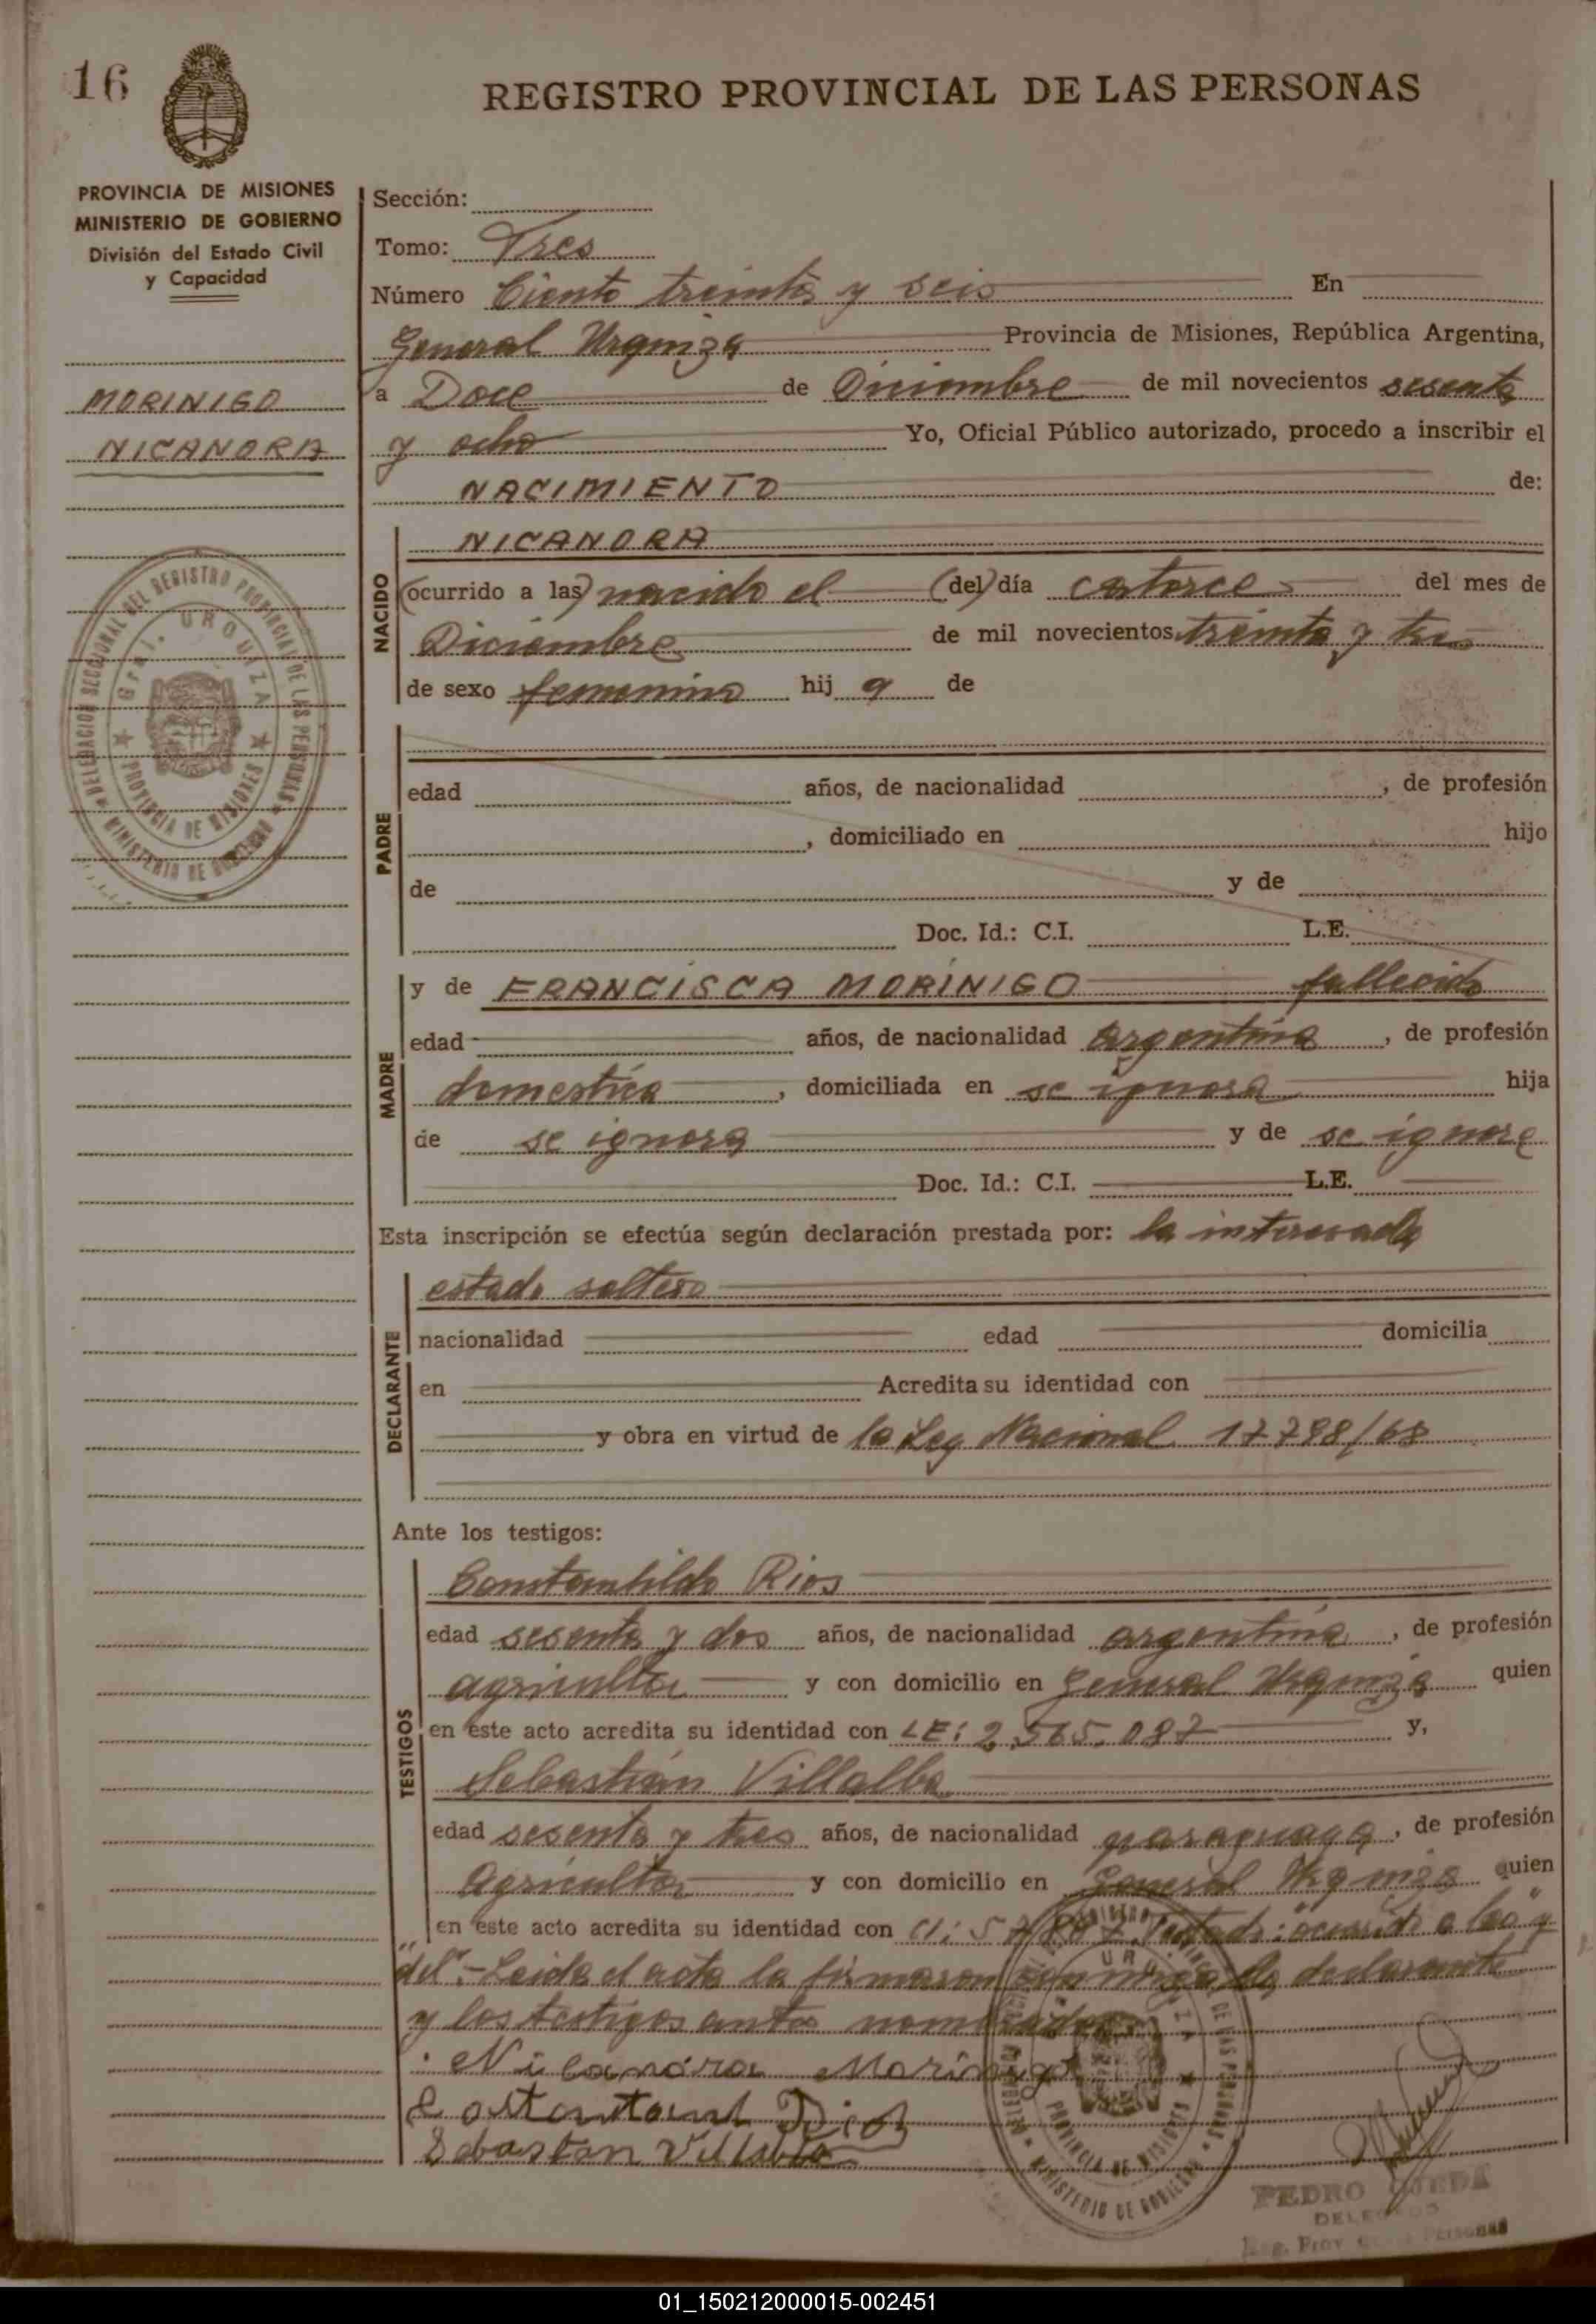 16
REGISTRO PROVINCIAL DE LAS PERSONAS
PROVINCIA DE MISIONES
MINISTERIO DE GOBIERNO
División del Estado Civil
y Capacidad
MORINIGO
NICANORA
DELEGACION SECCIONAL DEL REGISTRO PROVINCIAL DE LAS PERSONAS
Gral. URQUIZA
PROVINCIA DE MISIONES
MINISTERIO DE GOBIERNO
Sección:
Tomo: Tres
Número Ciento treinta y seis En
General Urquiza Provincia de Misiones, República Argentina,
a Doce de Diciembre de mil novecientos sesenta
y ocho Yo, Oficial Público autorizado, procedo a inscribir el
NACIMIENTO de:
NACIDO
NICANORA
(ocurrido a las) nacido el (del) día catorce del mes de
Diciembre de mil novecientos treinta y tres
de sexo femenino hij a de
PADRE
edad años, de nacionalidad , de profesión
, domiciliado en hijo
de y de
Doc. Id.: C.I. L.E.
MADRE
y de FRANCISCA MORINIGO fallecida
edad años, de nacionalidad argentina, de profesión
domestica, domiciliada en se ignora hija
de se ignora y de se ignora
Doc. Id.: C.I. L.E.
Esta inscripción se efectúa según declaración prestada por: la interesada
DECLARANTE
estado soltera
nacionalidad edad domicilia
en Acredita su identidad con
y obra en virtud de la Ley Nacional 17798/68
Ante los testigos:
TESTIGOS
Rios
edad sesenta y dos años, de nacionalidad argentina, de profesión
agricultor y con domicilio en General Urquiza quien
en este acto acredita su identidad con LE: 2.565.087 y,
Sebastián Villalba
edad sesenta y tres años, de nacionalidad paraguaya, de profesión
Agricultor y con domicilio en General Urquiza quien
en este acto acredita su identidad con CI: Testado: "ocurrido a las" y
"del".- Leida el acta la firmaron conmigo la declarante
y los testigos antes nombrados
Nicanora Morinigo
Rios
Sebastian Villalba
PEDRO OJEDA
DELEGADO
01_150212000015-002451